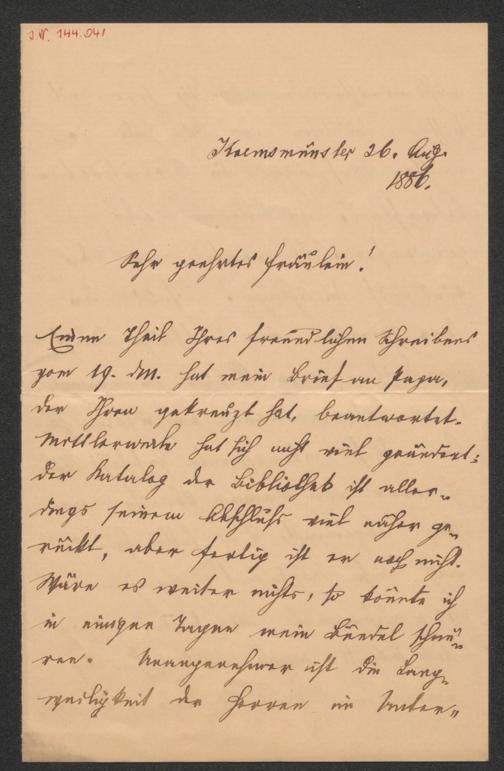 J.N. 144.041
Kremsmünster 26. Aug.
1886.
Sehr geehrtes Fräulein!
Einen Theil Ihres freundlichen Schreibens
vom 19. dM. hat mein Brief an Papa,
der Ihren gekreuzt hat, beantwortet.
Mittlerweile hat sich nicht viel geändert:
der Katalog der Bibliothek ist aller-
dings seinem Abschluße viel näher ge-
rückt, aber fertig ist er noch nicht.
Wäre es weiter nichts, so könnte ich
in einigen Tagen mein Bündel schnü-
ren. Unangenehmer ist die Lang-
weiligkeit der Herren im Unter-